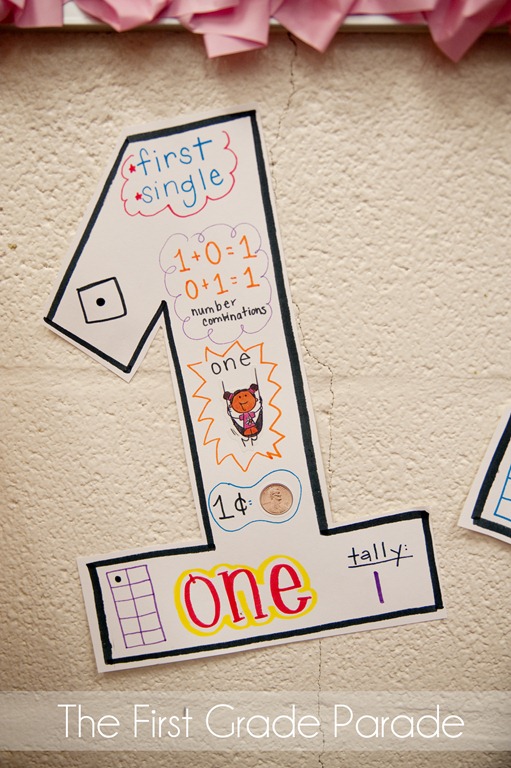 first
single
1+0=1
0+1=1
number
combinations
one
1¢=
one
tally:
The First Grade Parade